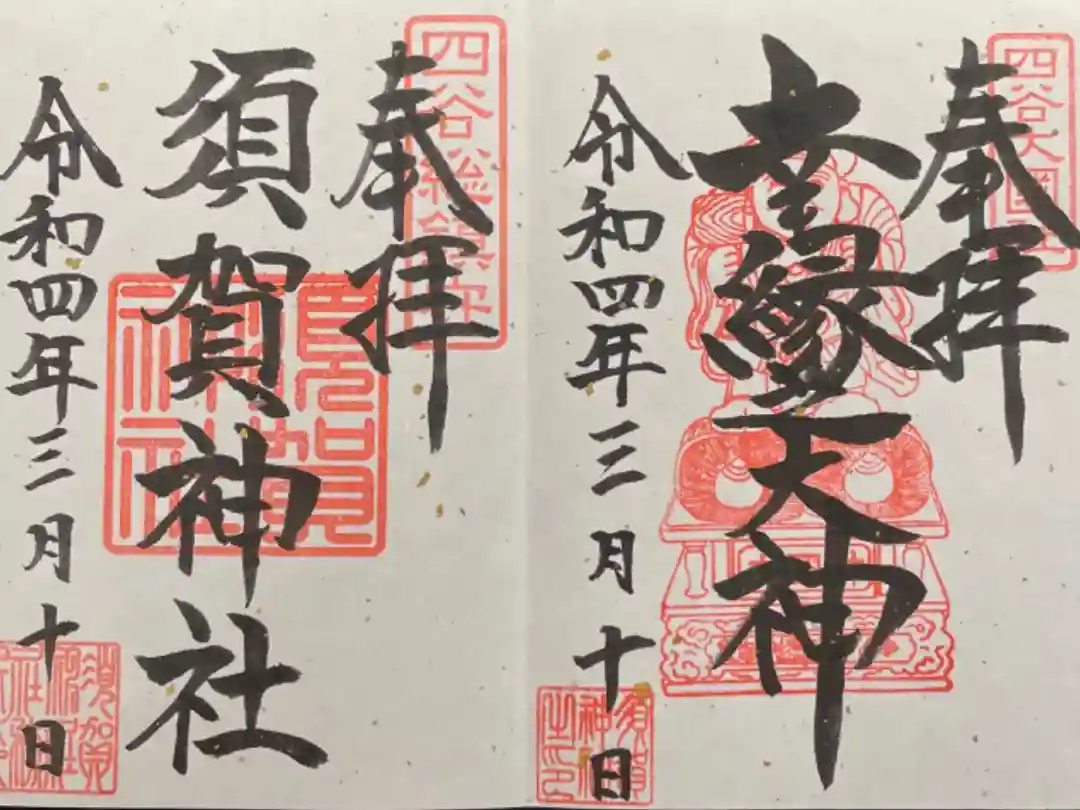 四谷大國社
奉拝
幸縁大神
令和四年三月十日
須賀神社之印
四谷総鎮守
奉拝
須賀神社
須賀神社
令和四年三月十日